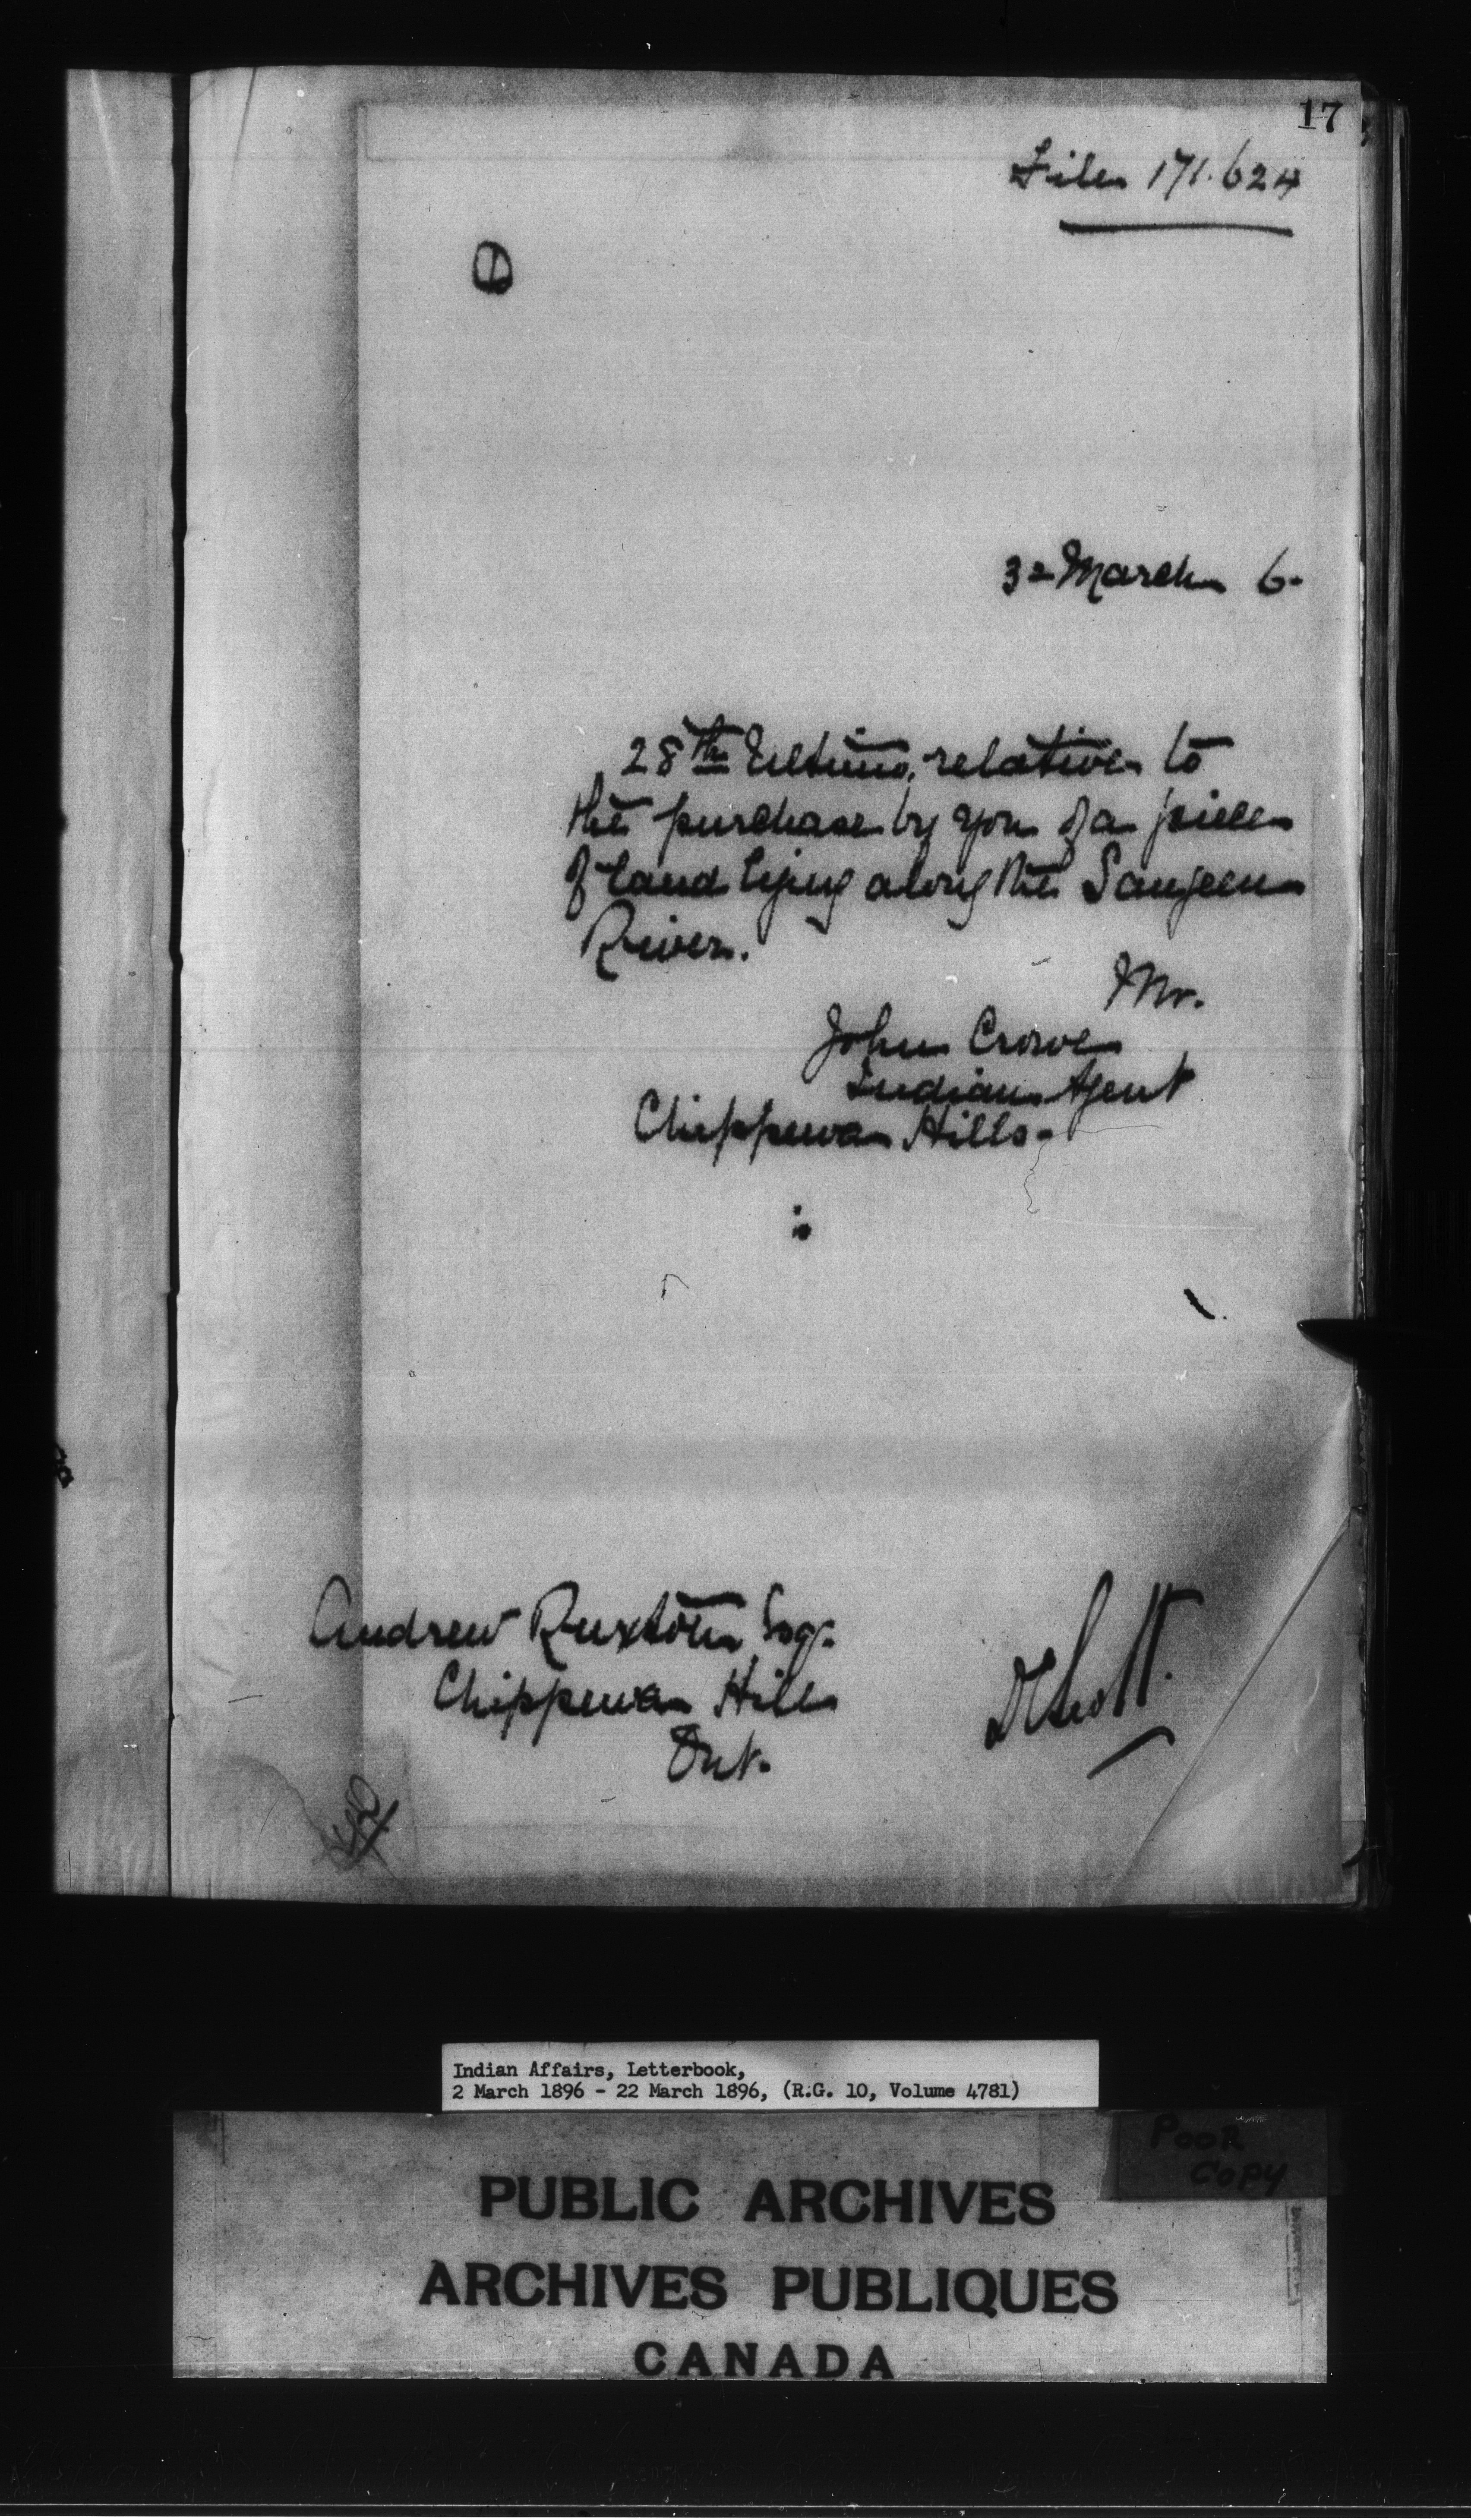 17
File 171.624
1
3rd March 6.
28th Ultimo, relative to
the purchase by you of a piece
of land lying along the Saugeen
River.
Mr.
John Crowe
Indian Agent
Chippewa Hills.
Andrew Ruxton Esq.
Chippewa Hill
Ont.
D C Scott.
Indian Affairs, Letterbook,
2 March 1896 - 22 March 1896, (R.G. 10, Volume 4781)
POOR
COPY
PUBLIC ARCHIVES
ARCHIVES PUBLIQUES
CANADA